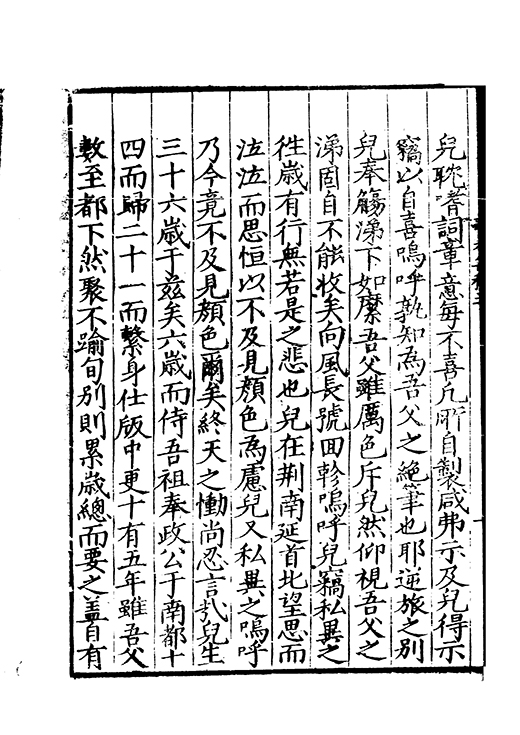 兒耽嗜詞章意每不喜凡所自製咸弗示及兒得示
竊以自喜嗚呼孰知為吾父之絕筆也耶逆旅之別
兒奉觴涕下如縻吾父雖厲色斥兒然仰視吾父之
涕固自不能收矣向風長號回軫嗚呼兒竊私異之
徃歲有行無若是之悲也兒在荆南延首北望思而
泣泣而思恒以不及見顏色為慮兒又私異之嗚呼
乃今竟不及見顏色爾矣終天之慟尚忍言㢤兒生
三十六歲于兹矣六歲而侍吾祖奉政公于南都十
四而歸二十一而繫身仕版中更十有五年雖吾父
數至都下然聚不踰旬別則累歲總而要之盖自有